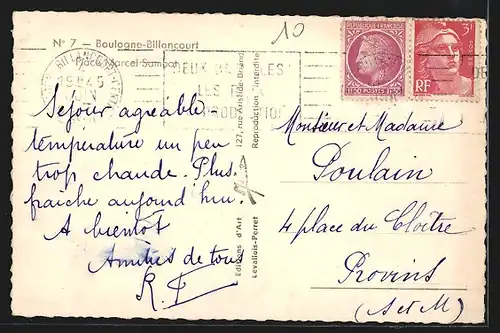 10
N° 7 - Boulogne-Billancourt
Place Marcel Sembat
BILLANCOURT
LES
REPUBLIQUE FRANÇAISE
1F50 POSTES 1F50
3F
RF
Sejour agreable
température un peu
trop chaude. Plus
fraiche aujourd'hui.
A bientôt
Amitiés de tous
R.P
Editions d'Art
Levallois-Perret
127, rue Aristide-Briand
Reproduction interdite
Monsieur et Madame
Poulain
4 place du Cloître
Provins
(S et M)